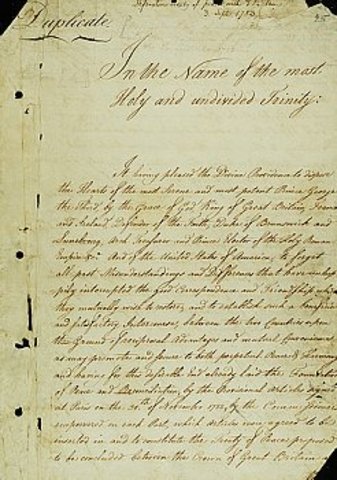 Definitive treaty of peace with G. Britain
3 Sept. 1783
Duplicate.
In the Name of the most
Holy and undivided Trinity:
It having pleased the Divine Providence to dispose
the Hearts of the most Serene and most potent Prince George
the third by the Grace of God King of Great Britain, France
and Ireland, Defender of the Faith, Duke of Brunswick and
Lunebourg, Arch Treasurer and Prince Elector of the Holy Roman
Empire &ca. And of the United States of America, to forget
all past Misunderstandings and Differences that have unhap-
pily interrupted the good Correspondence and Friendship which
they mutually wish to restore; and to establish such a beneficial
and satisfactory Intercourse between the two Countries upon
the Ground of reciprocal Advantages and mutual Convenience
as may promote and secure to both perpetual Peace & Harmony
and having for this desirable End already laid the Foundation
of Peace and Reconciliation, by the Provisional Articles signed
at Paris on the 30th. of Novembr. 1782, by the Commissioners
empowered on each Part, which Articles were agreed to be
inserted in and to constitute the Treaty of Peace proposed
to be concluded between the Crown of Great Britain